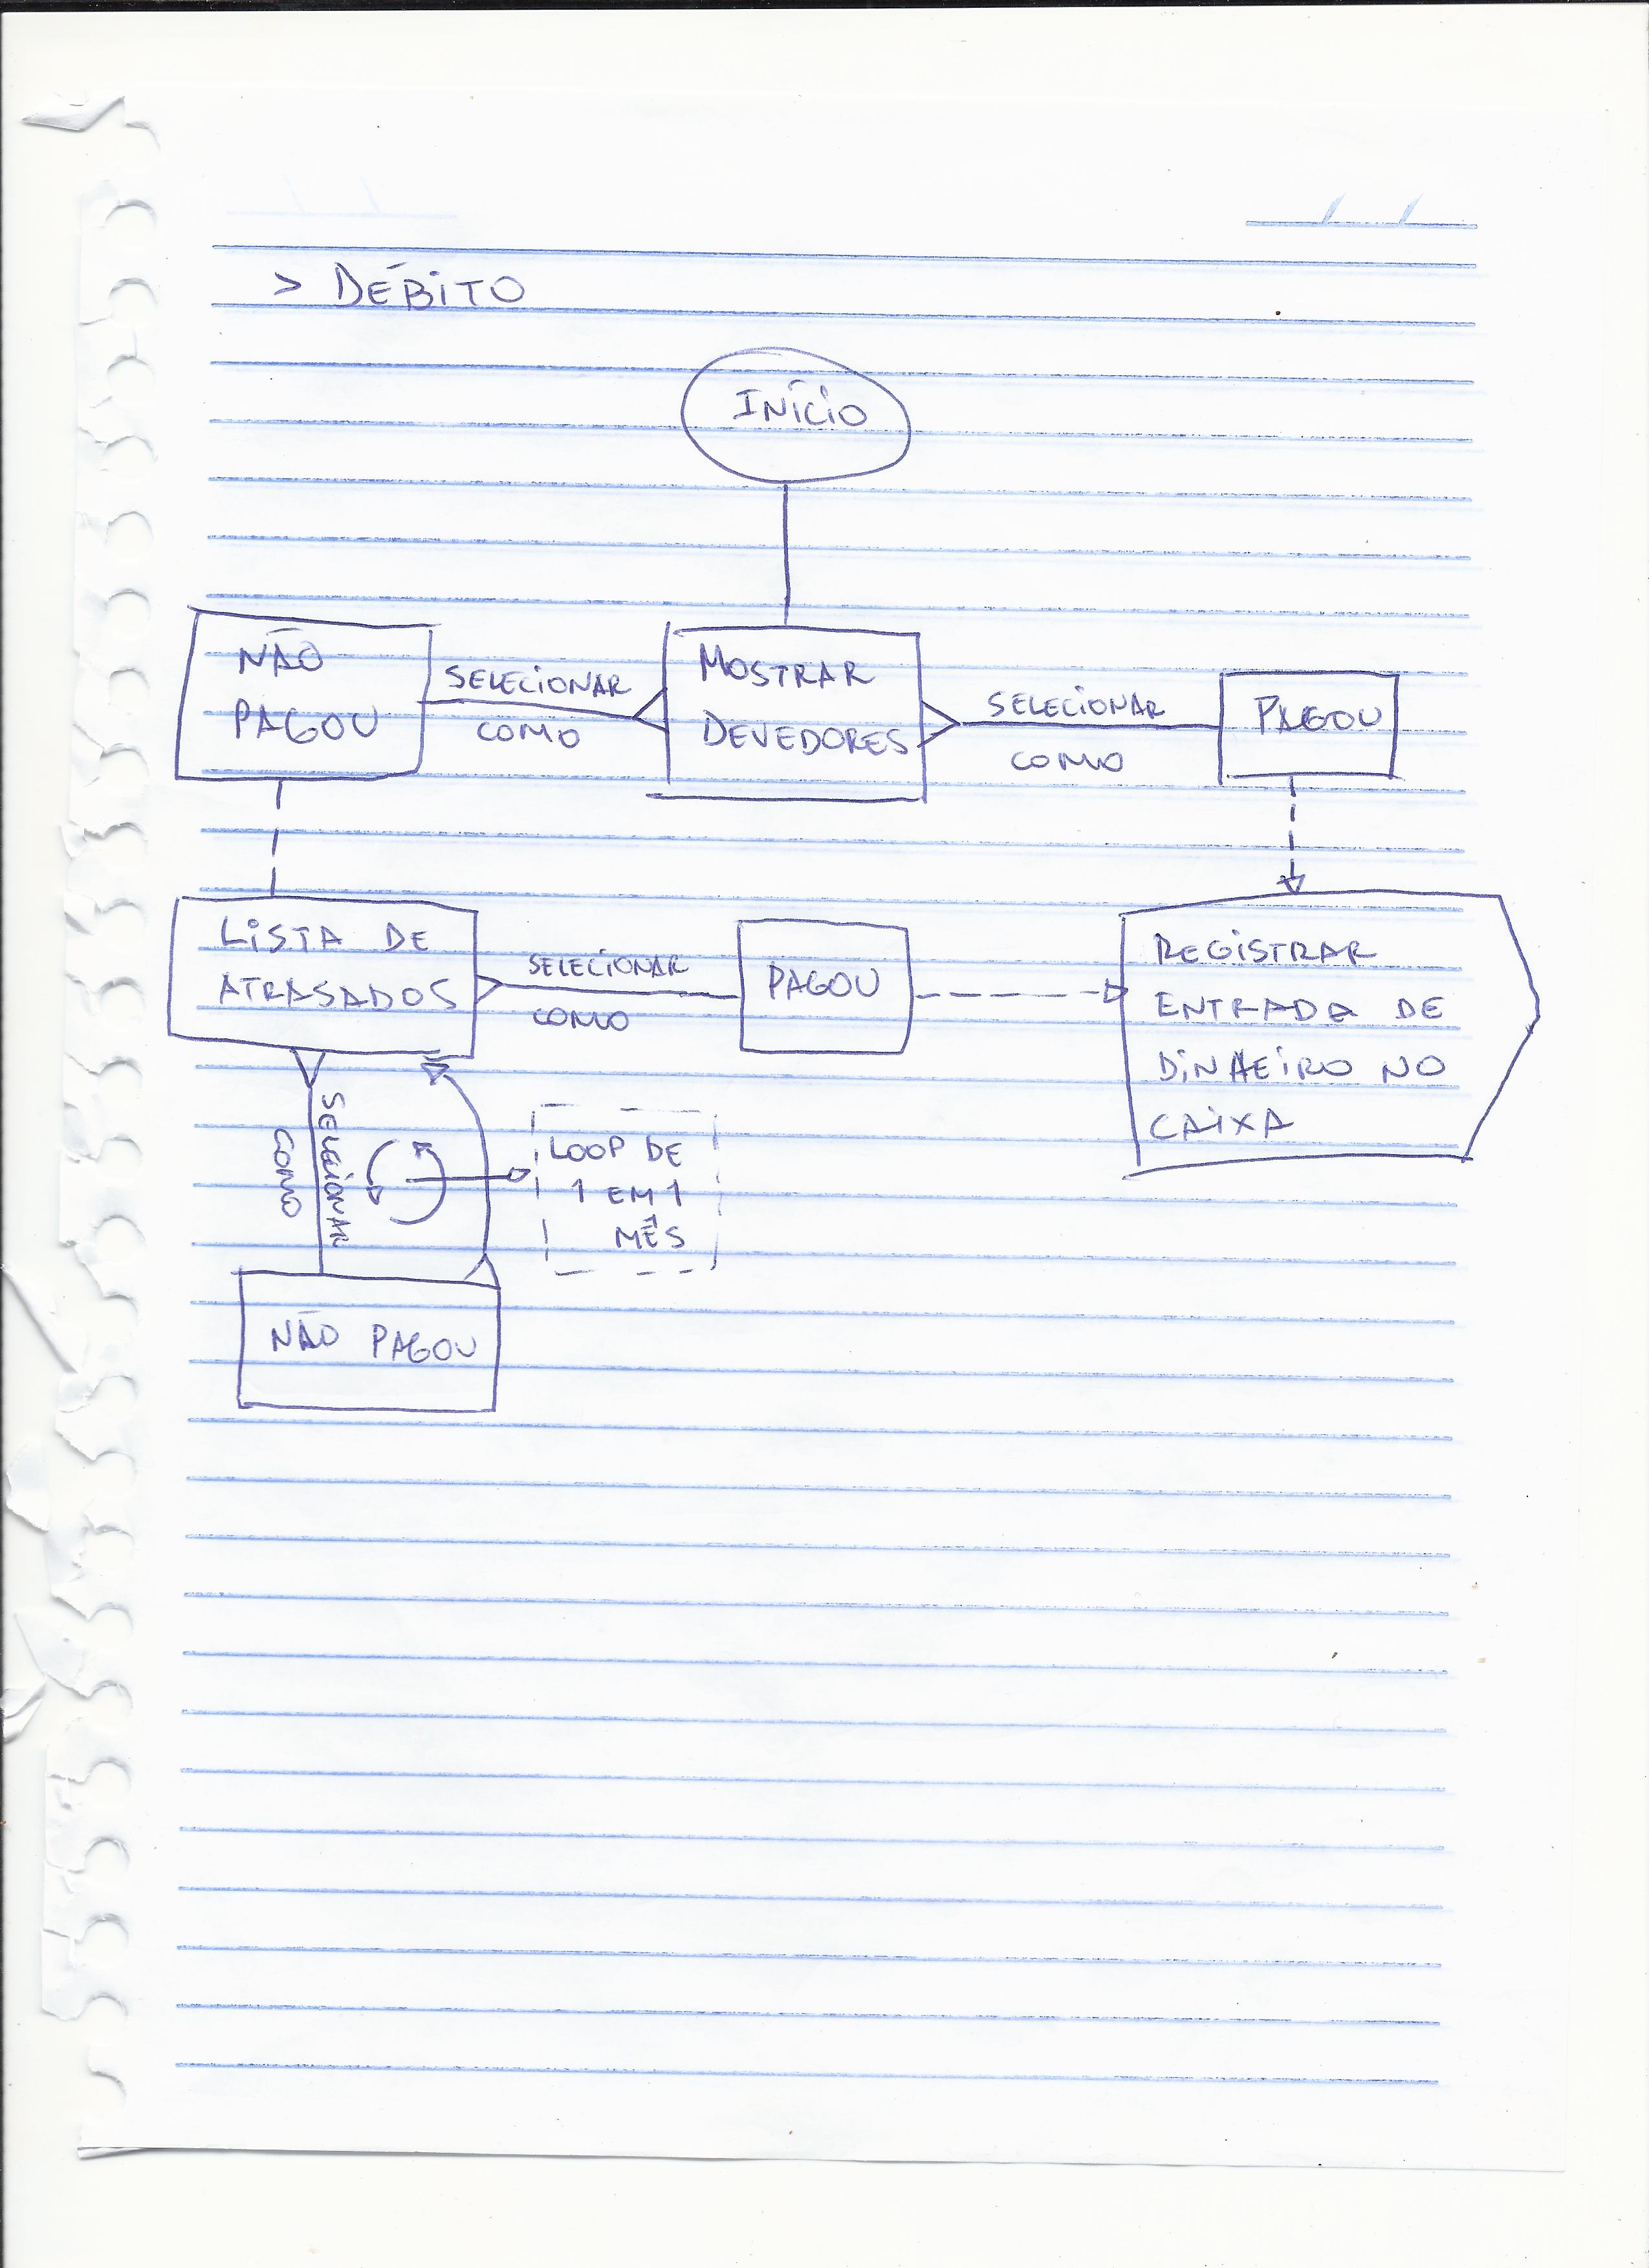 > DÉBITO
INÍCIO
NÃO
PAGOU
SELECIONAR
COMO
MOSTRAR
DEVEDORES
SELECIONAR
COMO
PAGOU
LISTA DE
ATRASADOS
SELECIONAR
COMO
PAGOU
REGISTRAR
ENTRADA DE
DINHEIRO NO
CAIXA
SELECIONAR
COMO
LOOP DE
1 EM 1
MÊS
NÃO PAGOU